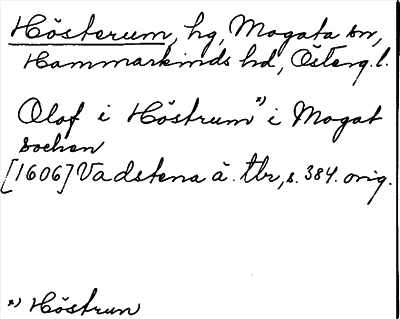 Hösterum, hg, Mogata sn,
Hammarkinds hd, Österg.l.
Olof i Höstrum*) i Mogat
sochen
[1606] Vadstena ä. tbr, s. 384. orig.
*) Höstrun